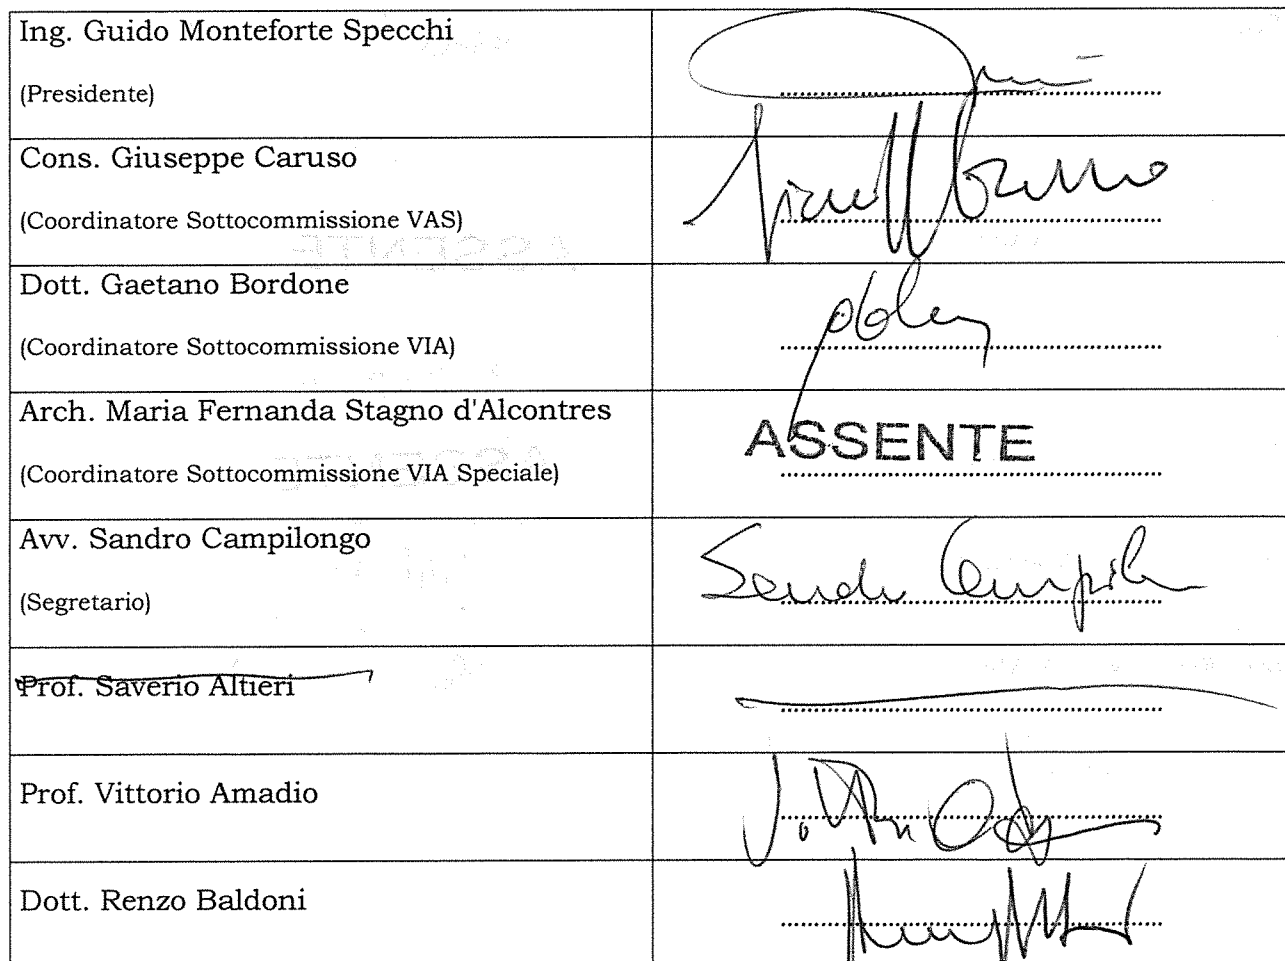 Ing. Guido Monteforte Specchi
(Presidente)
Cons. Giuseppe Caruso
(Coordinatore Sottocommissione VAS)
Dott. Gaetano Bordone
(Coordinatore Sottocommissione VIA)
Arch. Maria Fernanda Stagno d'Alcontres
ASSENTE
(Coordinatore Sottocommissione VIA Speciale)
Avv. Sandro Campilongo
(Segretario)
Prof. Saverio Altieri
Prof. Vittorio Amadio
Dott. Renzo Baldoni